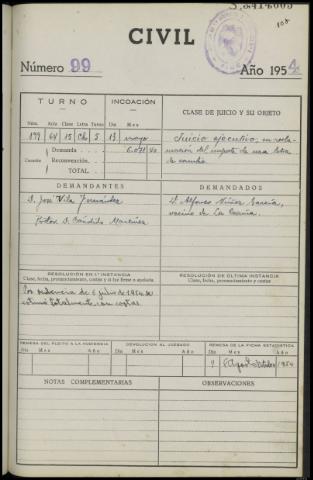 108
CIVIL
Número 99
Año 1954
TURNO
INCOACIÓN
CLASE DE JUICIO Y SU OBJETO
Núm. Año Clase Letra Tarea Día Mes
179 64 15 5 13 mayo
Juicio ejecutivo, en recla-
mación del importe de una letra
de cambio
Cuantía
Demanda
Reconvención
TOTAL
DEMANDANTES
DEMANDADOS
D. José Vila Fernández
Pdor D. Cándido Martínez
D. Alfonso Núñez García,
vecino de La Coruña.
RESOLUCIÓN EN 1.ª INSTANCIA
Clase, fecha, pronunciamiento, costas y si fue firme o apelada
RESOLUCIÓN DE ÚLTIMA INSTANCIA
Clase, fecha, pronunciamiento y costas
Por sentencia de 6 julio de 1954 se
estimó totalmente, con costas
REMESA DEL PLEITO A LA AUDIENCIA
DEVOLUCIÓN AL JUZGADO
REMESA DE LA FICHA ESTADÍSTICA
Día Mes Año
Día Mes Año
Día Mes Año
9 1954
NOTAS COMPLEMENTARIAS
OBSERVACIONES